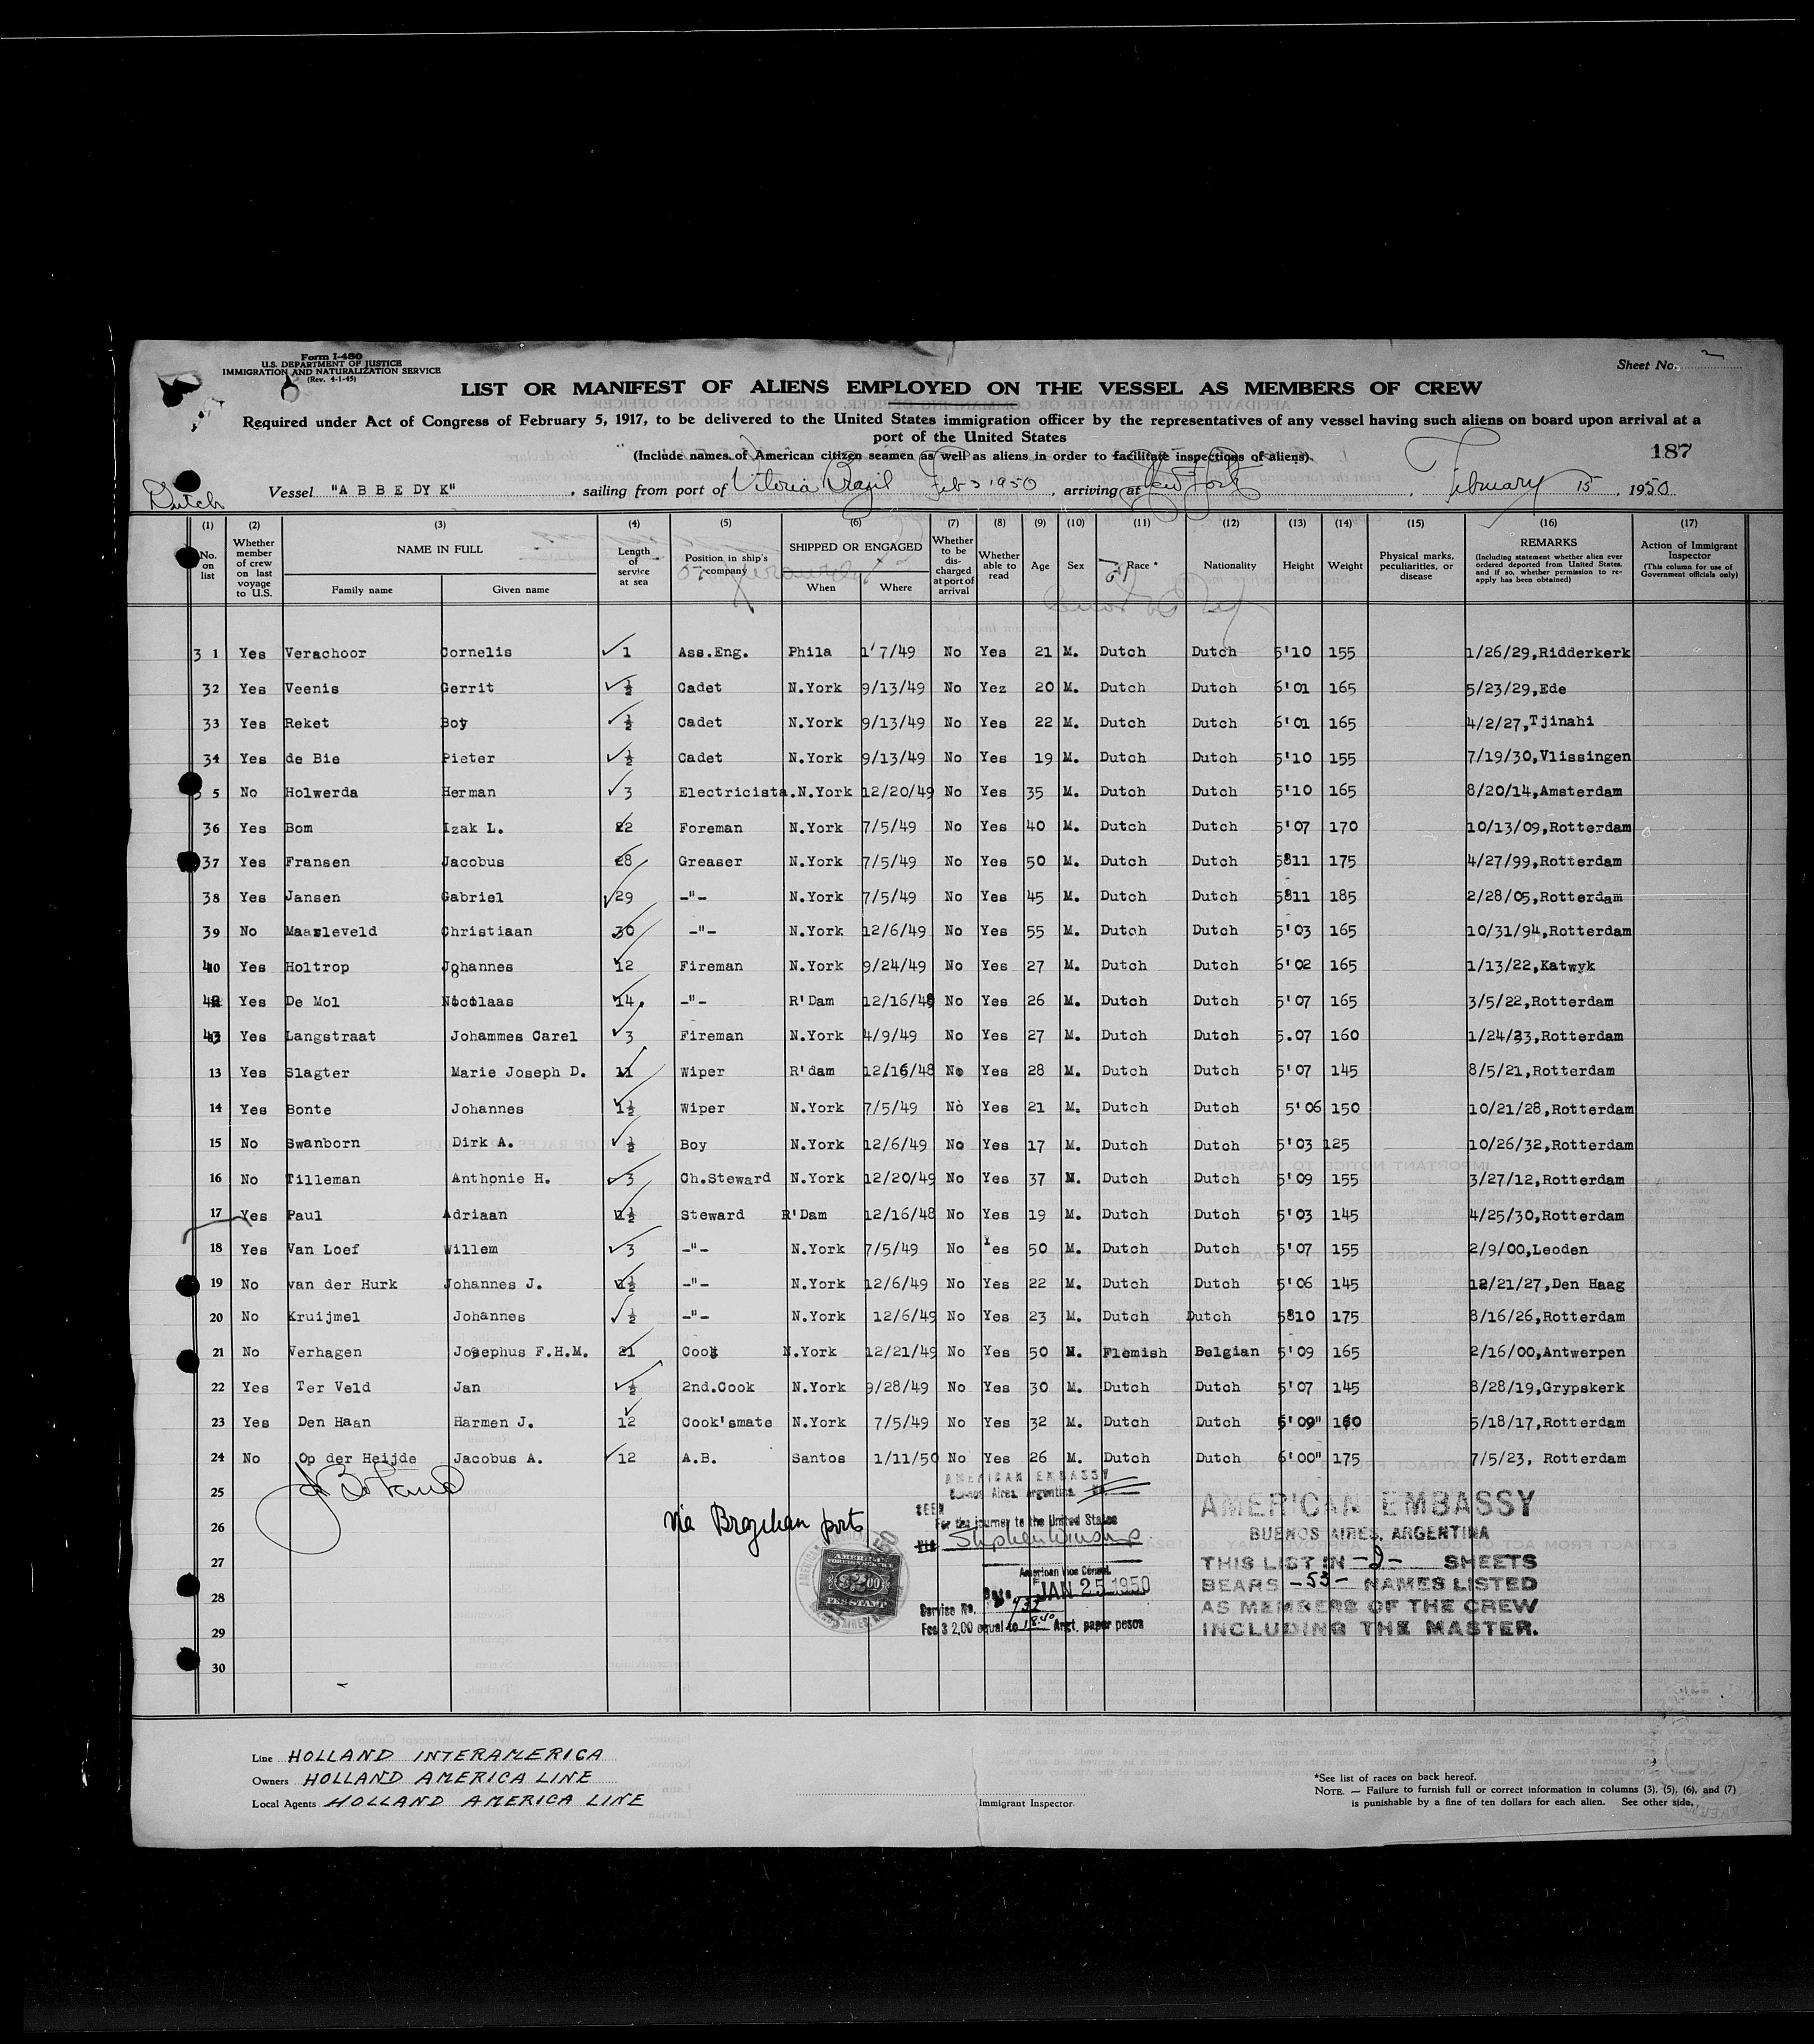 Form I-480
U.S. DEPARTMENT OF JUSTICE
IMMIGRATION AND NATURALIZATION SERVICE
(Rev. 4-1-45)
Sheet No. 2
LIST OR MANIFEST OF ALIENS EMPLOYED ON THE VESSEL AS MEMBERS OF CREW
Required under Act of Congress of February 5, 1917, to be delivered to the United States immigration officer by the representatives of any vessel having such aliens on board upon arrival at a
port of the United States
187
(Include names of American citizen seamen as well as aliens in order to facilitate inspections of aliens)
Dutch Vessel "A B B E DY K", sailing from port of Vitoria Brazil Feb 3 1950, arriving at New York, February 15, 1950
(1) (2) (3) (4) (5) (6) (7) (8) (9) (10) (11) (12) (13) (14) (15) (16) (17)
No. on list
Whether member of crew on last voyage to U.S.
NAME IN FULL
Family name Given name
Length of service at sea
Position in ship's company
SHIPPED OR ENGAGED
When Where
Whether to be discharged at port of arrival
Whether able to read
Age Sex Race * Nationality Height Weight
Physical marks, peculiarities, or disease
REMARKS
(Including statement whether alien ever ordered deported from United States, and if so, whether permission to reapply has been obtained)
Action of Immigrant Inspector
(This column for use of Government officials only)
3 1 Yes Verachoor Cornelis 1 Ass.Eng. Phila 1'7/49 No Yes 21 M. Dutch Dutch 5'10 155 1/26/29,Ridderkerk
32 Yes Veenis Gerrit ½ Cadet N.York 9/13/49 No Yez 20 M. Dutch Dutch 6'01 165 5/23/29,Ede
33 Yes Reket Boy ½ Cadet N.York 9/13/49 No Yes 22 M. Dutch Dutch 6'01 165 4/2/27,Tjinahi
34 Yes de Bie Pieter ½ Cadet N.York 9/13/49 No Yes 19 M. Dutch Dutch 5'10 155 7/19/30,Vlissingen
5 No Holwerda Herman 3 Electricista.N.York 12/20/49 No Yes 35 M. Dutch Dutch 5'10 165 8/20/14,Amsterdam
36 Yes Bom Izak L. 22 Foreman N.York 7/5/49 No Yes 40 M. Dutch Dutch 5'07 170 10/13/09,Rotterdam
37 Yes Fransen Jacobus 28 Greaser N.York 7/5/49 No Yes 50 M. Dutch Dutch 5811 175 4/27/99,Rotterdam
38 Yes Jansen Gabriel 29 -"- N.York 7/5/49 No Yes 45 M. Dutch Dutch 5811 185 2/28/05,Rotterdam
39 No Maarleveld Christiaan 30 -"- N.York 12/6/49 No Yes 55 M. Dutch Dutch 5'03 165 10/31/94,Rotterdam
40 Yes Holtrop Johannes 12 Fireman N.York 9/24/49 No Yes 27 M. Dutch Dutch 6'02 165 1/13/22,Katwyk
42 Yes De Mol Nicolaas 14. -"- R'Dam 12/16/48 No Yes 26 M. Dutch Dutch 5'07 165 3/5/22,Rotterdam
43 Yes Langstraat Johammes Carel 3 Fireman N.York 4/9/49 No Yes 27 M. Dutch Dutch 5.07 160 1/24/23,Rotterdam
13 Yes Slagter Marie Joseph D. 11 Wiper R'dam 12/16/48 No Yes 28 M. Dutch Dutch 5'07 145 8/5/21,Rotterdam
14 Yes Bonte Johannes 1½ Wiper N.York 7/5/49 No Yes 21 M. Dutch Dutch 5'06 150 10/21/28,Rotterdam
15 No Swanborn Dirk A. ½ Boy N.York 12/6/49 No Yes 17 M. Dutch Dutch 5'03 125 10/26/32,Rotterdam
16 No Tilleman Anthonie H. 3 Ch.Steward N.York 12/20/49 No Yes 37 M. Dutch Dutch 5'09 155 3/27/12,Rotterdam
17 Yes Paul Adriaan 1½ Steward R'Dam 12/16/48 No Yes 19 M. Dutch Dutch 5'03 145 4/25/30,Rotterdam
18 Yes Van Loef Willem 3 -"- N.York 7/5/49 No Yes 50 M. Dutch Dutch 5'07 155 2/9/00,Leoden
19 No van der Hurk Johannes J. 1½ -"- N.York 12/6/49 No Yes 22 M. Dutch Dutch 5'06 145 12/21/27,Den Haag
20 No Kruijmel Johannes ½ -"- N.York 12/6/49 No Yes 23 M. Dutch Dutch 5810 175 8/16/26,Rotterdam
21 No Verhagen Josephus F.H.M. 21 Cook N.York 12/21/49 No Yes 50 M. Flemish Belgian 5'09 165 2/16/00,Antwerpen
22 Yes Ter Veld Jan ½ 2nd.Cook N.York 9/28/49 No Yes 30 M. Dutch Dutch 5'07 145 8/28/19,Grypskerk
23 Yes Den Haan Harmen J. 12 Cook'smate N.York 7/5/49 No Yes 32 M. Dutch Dutch 5'09" 160 5/18/17,Rotterdam
24 No Op der Heijde Jacobus A. 12 A.B. Santos 1/11/50 No Yes 26 M. Dutch Dutch 6'00" 175 7/5/23, Rotterdam
25
26
27
28
29
30
via Brazilian ports
AMERICAN FOREIGN SERVICE
$2.00
FEE STAMP
AMERICAN EMBASSY
Buenos Aires, Argentina
SEEN
For the journey to the United States
VIA
American Vice Consul
Date JAN 25 1950
Service No. 
Fee $ 2.00 equal to 18.40 Arg. paper pesos
AMERICAN EMBASSY
BUENOS AIRES, ARGENTINA
THIS LIST IN -2- SHEETS
BEARS -53- NAMES LISTED
AS MEMBERS OF THE CREW
INCLUDING THE MASTER.
Line HOLLAND INTERAMERICA
Owners HOLLAND AMERICA LINE
Local Agents HOLLAND AMERICA LINE
Immigrant Inspector.
*See list of races on back hereof.
NOTE. — Failure to furnish full or correct information in columns (3), (5), (6), and (7)
is punishable by a fine of ten dollars for each alien. See other side.